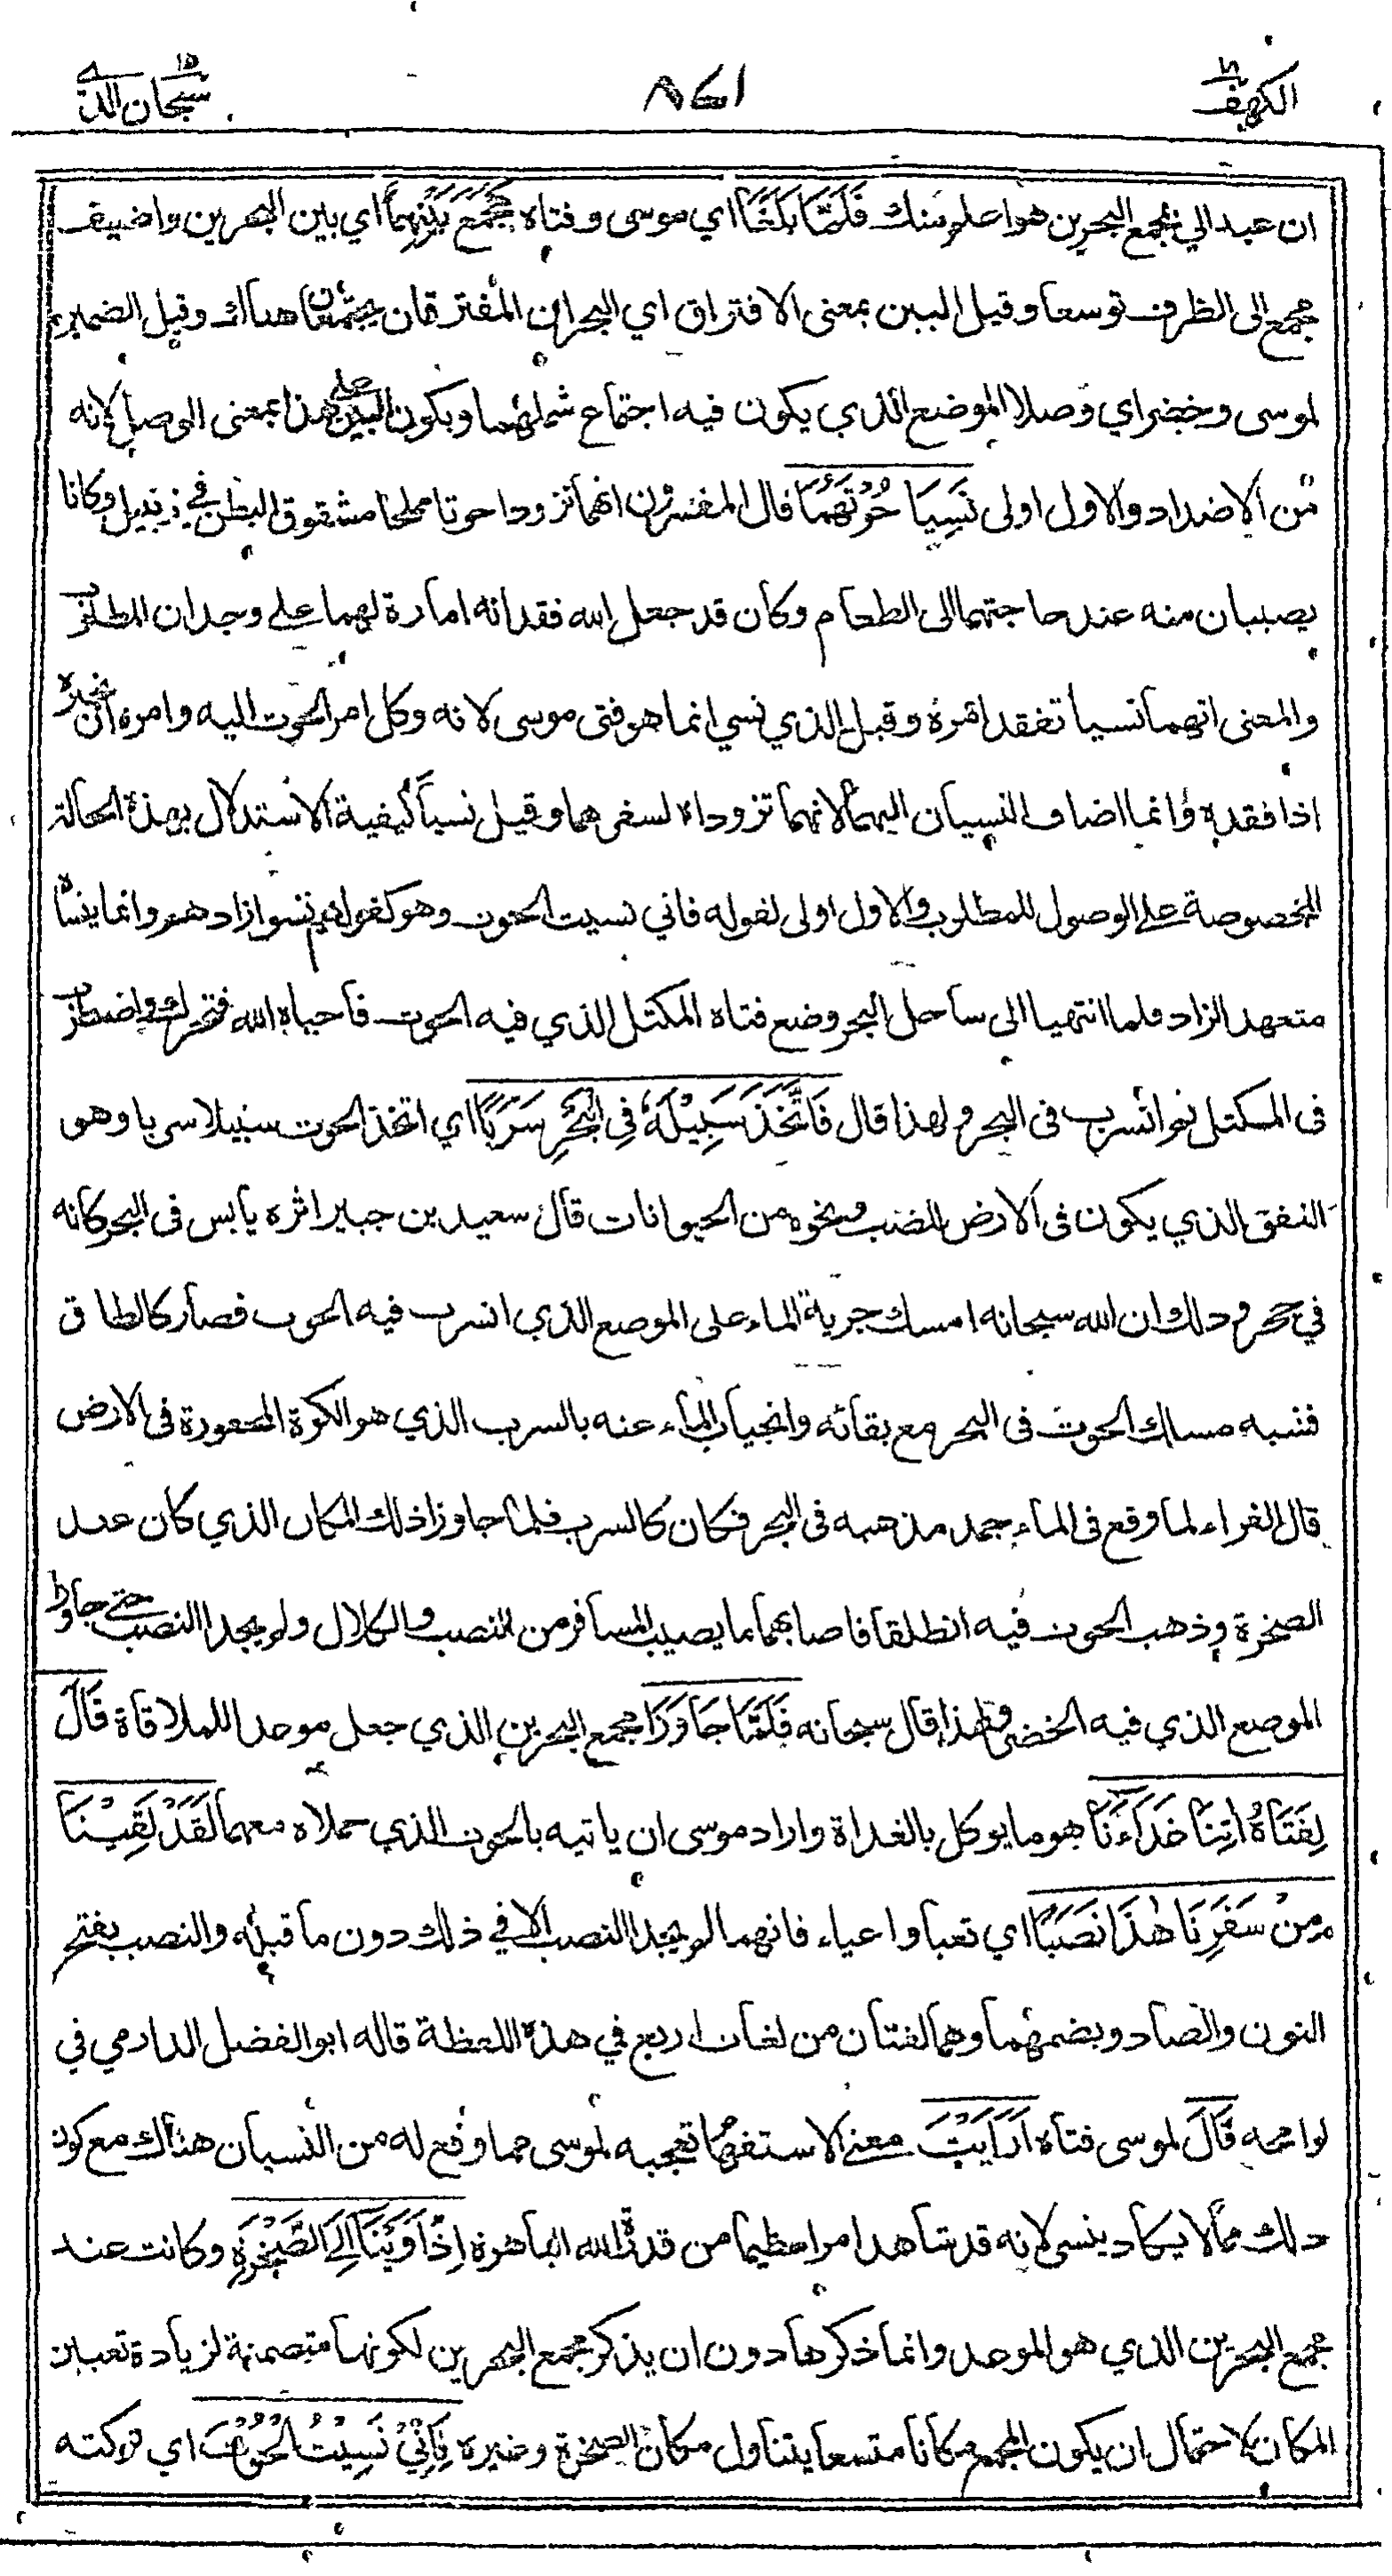 الكهف ١٨
٨٦١
سبحان الذي ١٥
ان عبدا لي بمجمع البحرين هو اعلم منك فَلَمَّا بَلَغَا اي موسى وفتاه مَجْمَعَ بَيْنِهِمَا اي بين البحرين واضيف
مجمع الى الظرف توسعا وقيل البين بمعنى الافتراق اي البحران المفترقان يجتمعان هناك وقيل الضمير
لموسى وخضر اي وصلا الموضع الذي يكون فيه اجتماع شملهما ويكون البين على هذا بمعنى الوصل لانه
من الاضداد والاول اولى نَسِيَا حُوْتَهُمَا قال المفسرون انهما تزودا حوتا مملحا مشقوق البطن في زنبيل وكانا
يصيبان منه عند حاجتهما الى الطعام وكان قد جعل الله فقدانه امارة لهما على وجدان المطلوب
والمعنى انهما نسيا تفقد امره وقيل الذي نسي انما هو فتى موسى لانه وكل امر الحوت اليه وامره ان يخبره
اذا فقده وانما اضاف النسيان اليهما لانهما تزوداه لسفرهما وقيل نسيا كيفية الاستدلال بهذه الحالة
المخصوصة على الوصول للمطلوب والاول اولى لقوله فاني نسيت الحوت وهو كقولهم نسوا زادهم وانما ينساه
متعهد الزاد فلما انتهيا الى ساحل البحر وضع فتاه المكتل الذي فيه الحوت فاحياه الله فتحرك واضطرب
في المكتل ثم انسرب في البحر ولهذا قال فَاتَّخَذَ سَبِيْلَهُ فِى الْبَحْرِ سَرَبًا اي اتخذ الحوت سبيلا سربا وهو
النفق الذي يكون في الارض للضب ونحوه من الحيوانات قال سعيد بن جبير اثره يابس في البحر كانه
في حجر وذلك ان الله سبحانه امسك جرية الماء على الموضع الذي انسرب فيه الحوت فصار كالطاق
فشبه مسلك الحوت في البحر مع بقائه وانجياب الماء عنه بالسرب الذي هو الكوة المحفورة في الارض
قال الفراء لما وقع في الماء جمد مذهبه في البحر فكان كالسرب فلما جاوزا ذلك المكان الذي كان عند
الصخرة وذهب الحوت فيه انطلقا فاصابهما ما يصيب المسافر من النصب والكلال ولم يجدا النصب حتى جاوزا
الموضع الذي فيه الخضر ولهذا قال سبحانه فَلَمَّا جَاوَزَا مجمع البحرين الذي جعل موعدا للملاقاة قَالَ
لِفَتَاهُ اٰتِنَا غَدَآءَنَا هو ما يوكل بالغداة واراد موسى ان ياتيه بالحوت الذي حملاه معهما لَقَدْ لَقِيْنَا
مِنْ سَفَرِنَا هٰذَا نَصَبًا اي تعبا واعياء فانهما لم يجدا النصب الا في ذلك دون ما قبله والنصب بفتح
النون والصاد وبضمهما وهما لغتان من لغات اربع في هذه اللفظة قاله ابو الفضل الدارمي في
لوامحه قَالَ لموسى فتاه اَرَاَيْتَ معنى الاستفهام تعجبه لموسى مما وقع له من النسيان هناك مع كون
ذلك مما لا يكاد ينسى لانه قد شاهد امرا عظيما من قدرة الله الباهرة اِذْ اَوَيْنَا اِلَى الصَّخْرَةِ وكانت عند
مجمع البحرين الذي هو الموعد وانما ذكرها دون ان يذكر مجمع البحرين لكونها متضمنة لزيادة تعيين
المكان لاحتمال ان يكون المجمع مكانا متسعا يتناول مكان الصخرة وغيره فَاِنِّيْ نَسِيْتُ الْحُوْتَ اي تركته